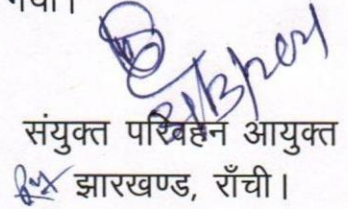 गया।
संयुक्त परिवहन आयुक्त
झारखण्ड, राँची।